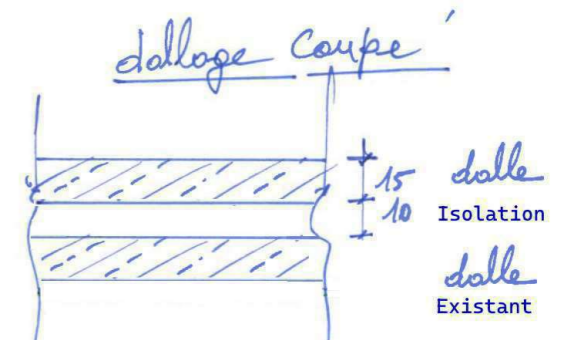 dallage Coupe
15 dalle
10 Isolation
dalle
Existant